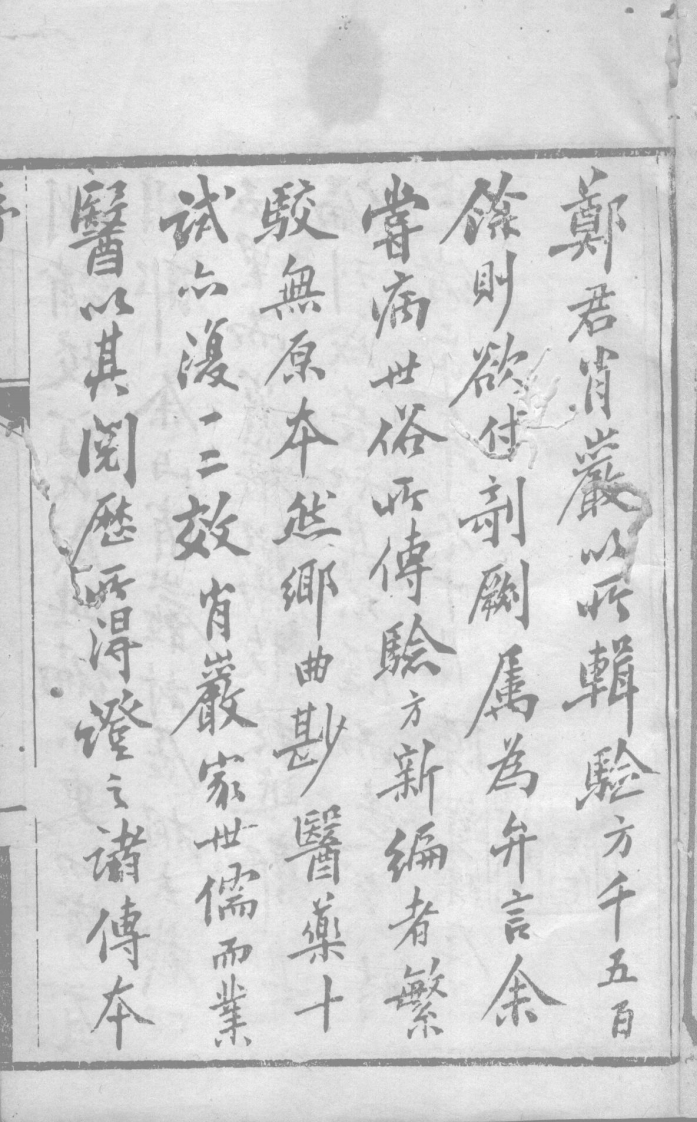 鄭君肖巖以所輯驗方千五百
餘則欲付剞劂属為弁言余
嘗病世俗所傳驗方新編者繁
駮無原本然鄉曲尠醫藥十
試亦復一二效肖巖家世儒而業
醫以其閱歷所得澄之諸傳本